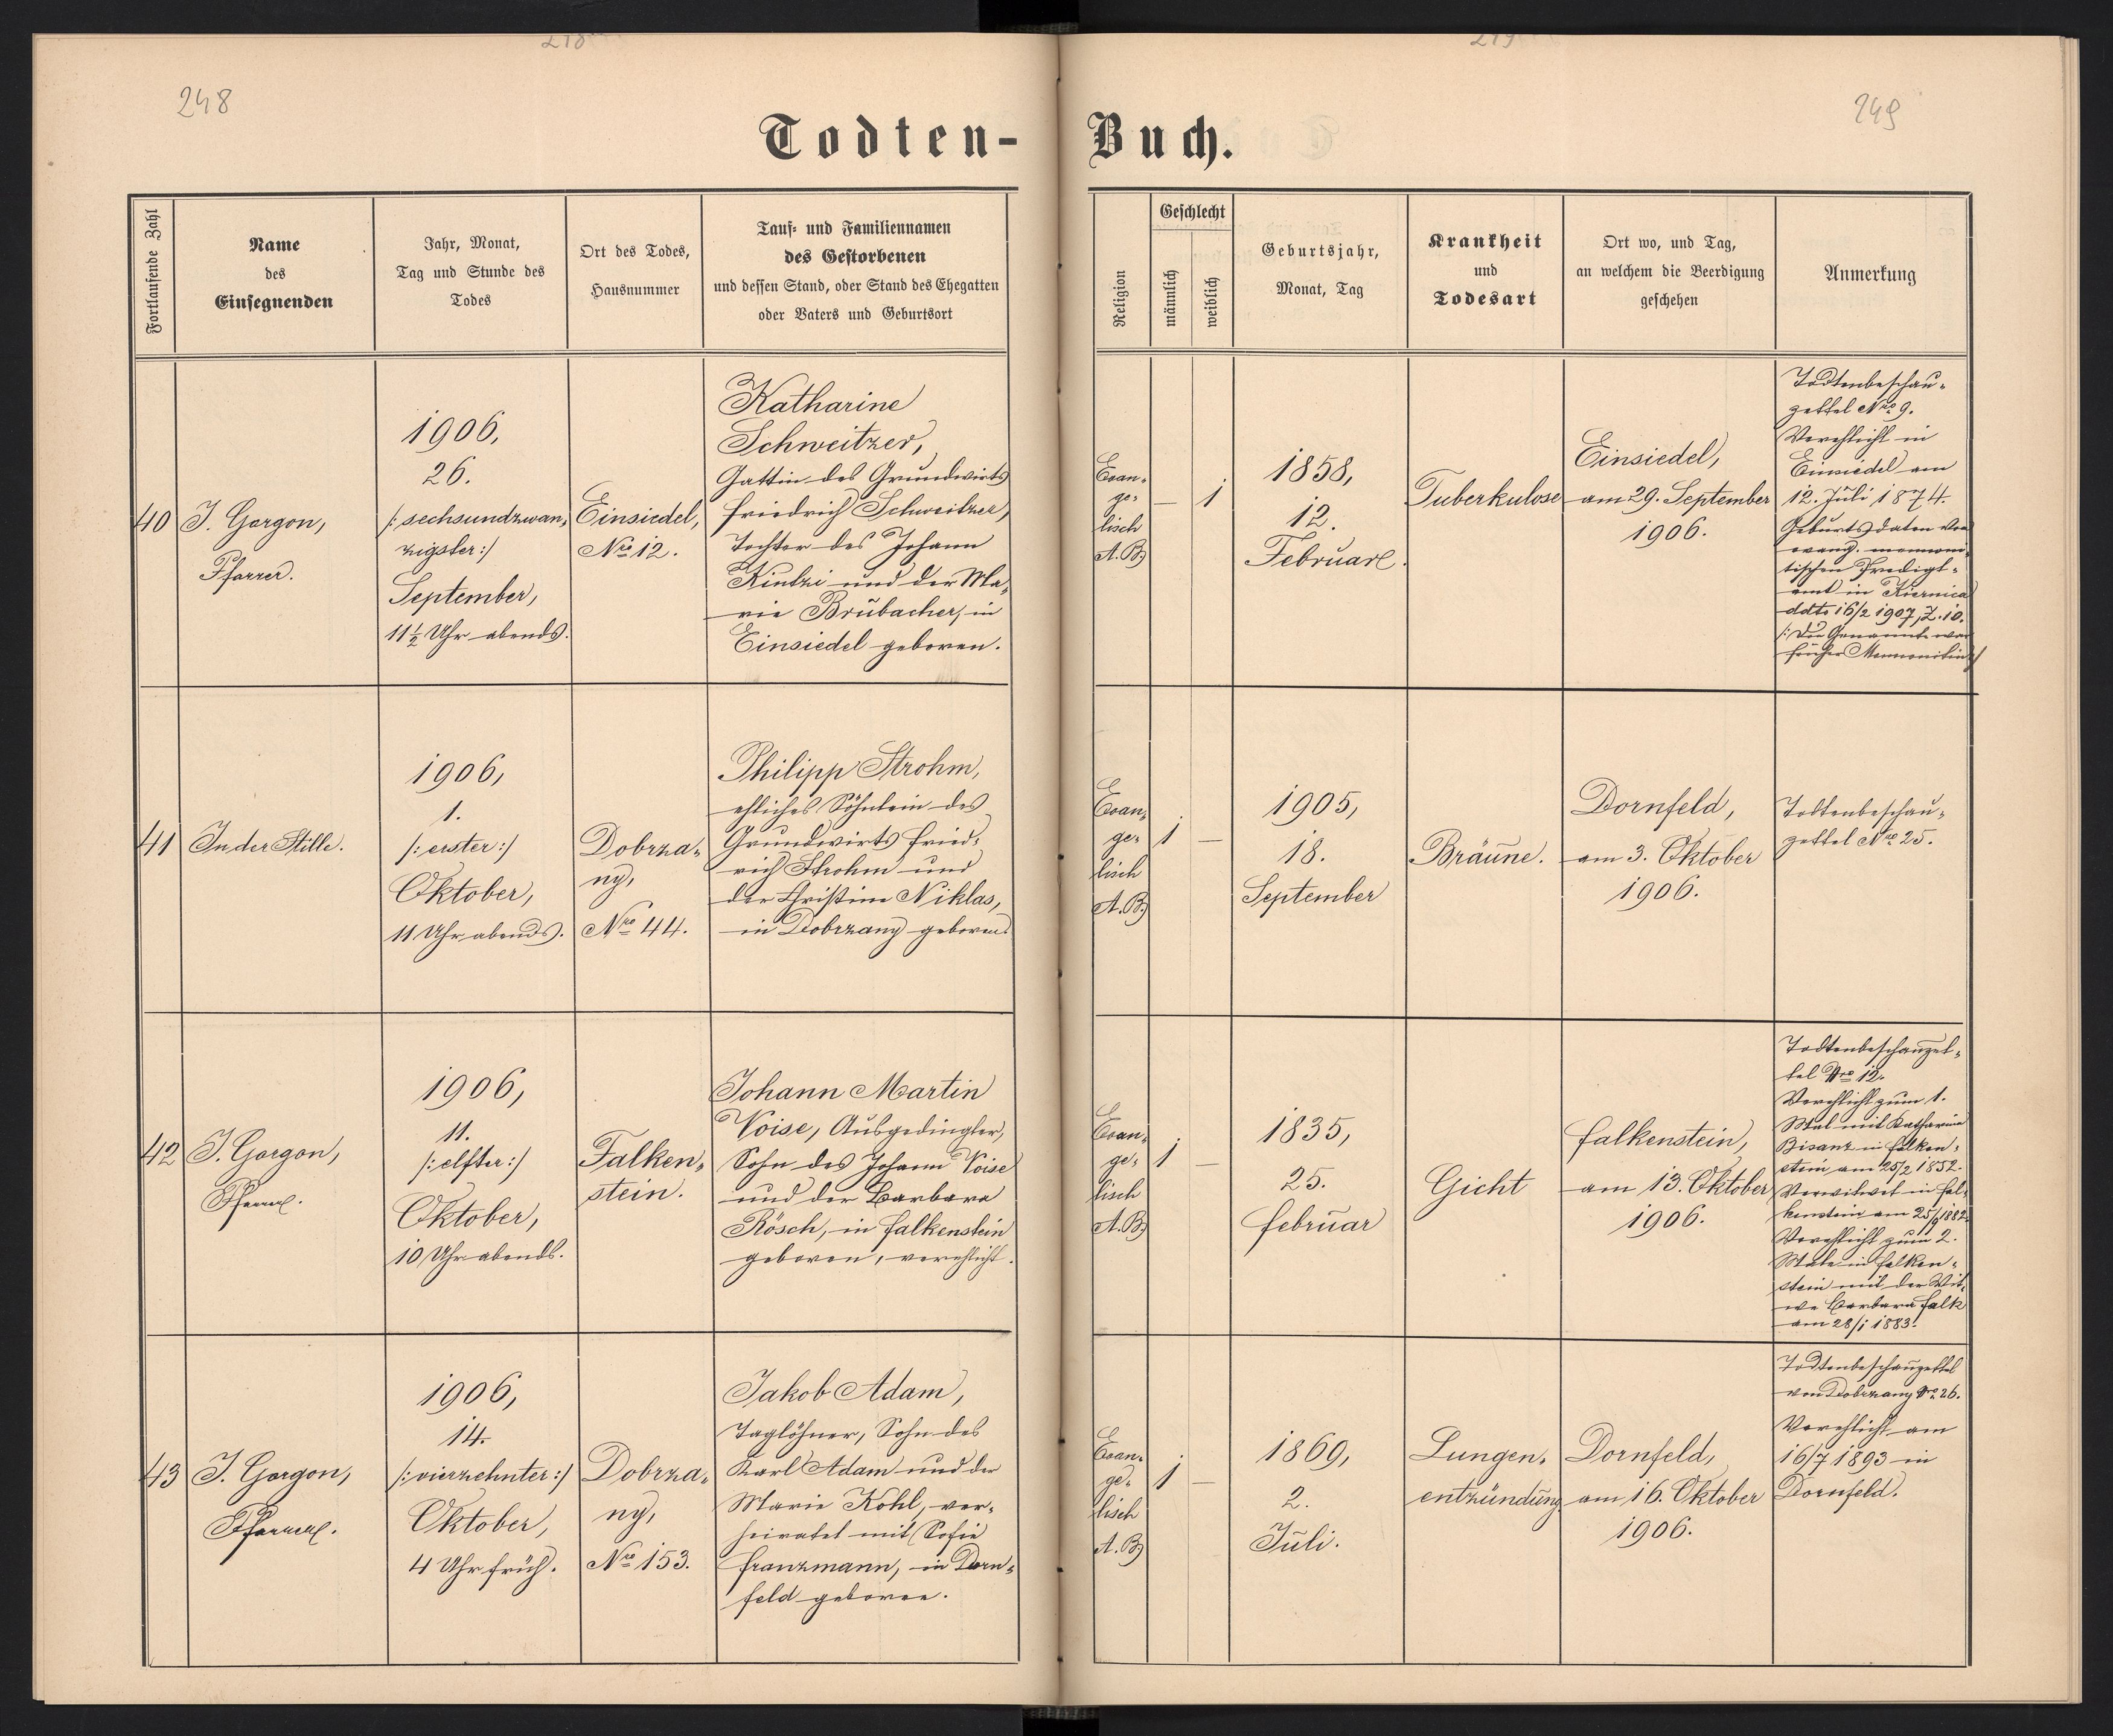 218
219
248
249
Todten-
Buch.
Fortlaufende Zahl
Name
des
Einsegnenden
Jahr, Monat,
Tag und Stunde des
Todes
Ort des Todes,
Hausnummer
Tauf- und Familiennamen
des Gestorbenen
und dessen Stand, oder Stand des Ehegatten
oder Vaters und Geburtsort
Religion
Geschlecht
männlich
weiblich
Geburtsjahr,
Monat, Tag
Krankheit
und
Todesart
Ort wo, und Tag,
an welchem die Beerdigung
geschehen
Anmerkung
40
J. Gorgon,
Pfarrer.
1906,
26.
/: sechsundzwan-
zigster :/
September,
11½ Uhr abends.
Einsiedel,
Nro 12.
Katharine
Schweitzer,
Gattin des Grundwirts
Friedrich Schweitzer,
Tochter des Johann
Kintzi und der Ma-
rie Brubacher, in
Einsiedel geboren.
Evan-
ge-
lisch
A.B.
—
1
1858,
12.
Februar.
Tuberkulose
Einsiedel,
am 29. September
1906.
Todtenbeschau-
zettel Nro 9.
Verehlicht in
Einsiedel am
12. Juli 1874.
Geburtsdaten vom
evang. mennoni-
tischen Predigt-
amt in Kiernica
ddto 16/2 1907, Z. 10.
/: Die Genannte war
früher Mennonitin :/
41
In der Stille.
1906,
1.
/: erster :/
Oktober,
11 Uhr abends.
Dobrza-
ny,
Nro 44.
Philipp Strohm,
ehliches Söhnlein des
Grundwirts Fried-
rich Strohm und
der Christine Niklas,
in Dobrzany geboren.
Evan-
ge-
lisch
A.B.
1
—
1905,
18.
September
Bräune.
Dornfeld,
am 3. Oktober
1906.
Todtenbeschau-
zettel Nro 25.
42
J. Gorgon,
Pfarrer.
1906,
11.
/: elfter :/
Oktober,
10 Uhr abends.
Falken-
stein.
Johann Martin
Voise, Ausgedingler,
Sohn des Johann Voise
und der Barbara
Rösch, in Falkenstein
geboren, verehlicht.
Evan-
ge-
lisch
A.B.
1
—
1835,
25.
Februar
Gicht
Falkenstein,
am 13. Oktober
1906.
Todtenbeschauzet-
tel Nro 12.
Verehlicht zum 1.
Mal mit Katharina
Bisanz in Falken-
stein am 25/2 1852.
Verwitwet in Fal-
kenstein am 25/9 1882.
Verehlicht zum 2.
Male in Falken-
stein mit der Wit-
we Barbara Falk
am 28/1 1883.
43
J. Gorgon,
Pfarrer.
1906,
14.
/: vierzehnter :/
Oktober,
4 Uhr früh.
Dobrza-
ny,
Nro 153.
Jakob Adam,
Taglöhner, Sohn des
Karl Adam und der
Marie Kohl, ver-
heiratet mit Sofie
Franzmann, in Dorn-
feld geboren.
Evan-
ge-
lisch
A.B.
1
—
1869,
2.
Juli.
Lungen-
entzündung
Dornfeld,
am 16. Oktober
1906.
Todtenbeschauzettel
von Dobrzany Nro 26.
Verehlicht am
16/7 1893 in
Dornfeld.